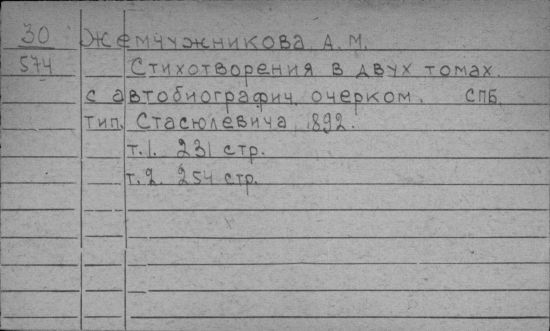 30 Жемчужникова А. М.
574 Стихотворения в двух томах.
с автобиографич. очерком. СПБ.
тип. Стасюлевича, 1892.
т.1. 231 стр.
т.2. 254 стр.